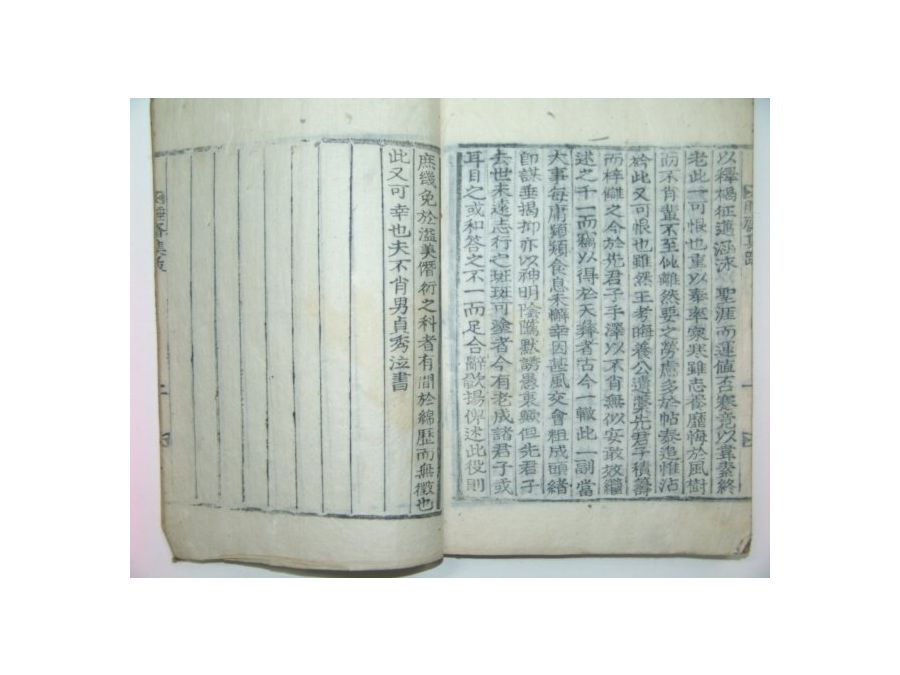 以釋褐征邁涵泳 聖涯而運値否寒竟以韋素終
老此一可恨也重以奉率家寒雖志養靡悔於風樹
而不肖輩不至仳離然要之勞慮多於帖泰追惟沾
衿此又可恨也雖然王考晦養公遺藁先君子積籌
而梓讎之今於先君子手澤以不肖無似安敢放繼
述之千一而竊以得於天彛者古今一轍此一副當
大事每庸熲熲食息未懈幸因甚風交會粗成頭緖
卽謀垂揭抑亦以神明陰隲默誘愚衷歟但先君子
去世未遠志行之斑斑可塗者今有老成諸君子或
耳目之或和答之不一而足合辭歆揚俾述此役則
庶幾免於溢美僭衍之科者有間於綿歷而無徵也
此又可幸也夫不肖男貞秀泣書